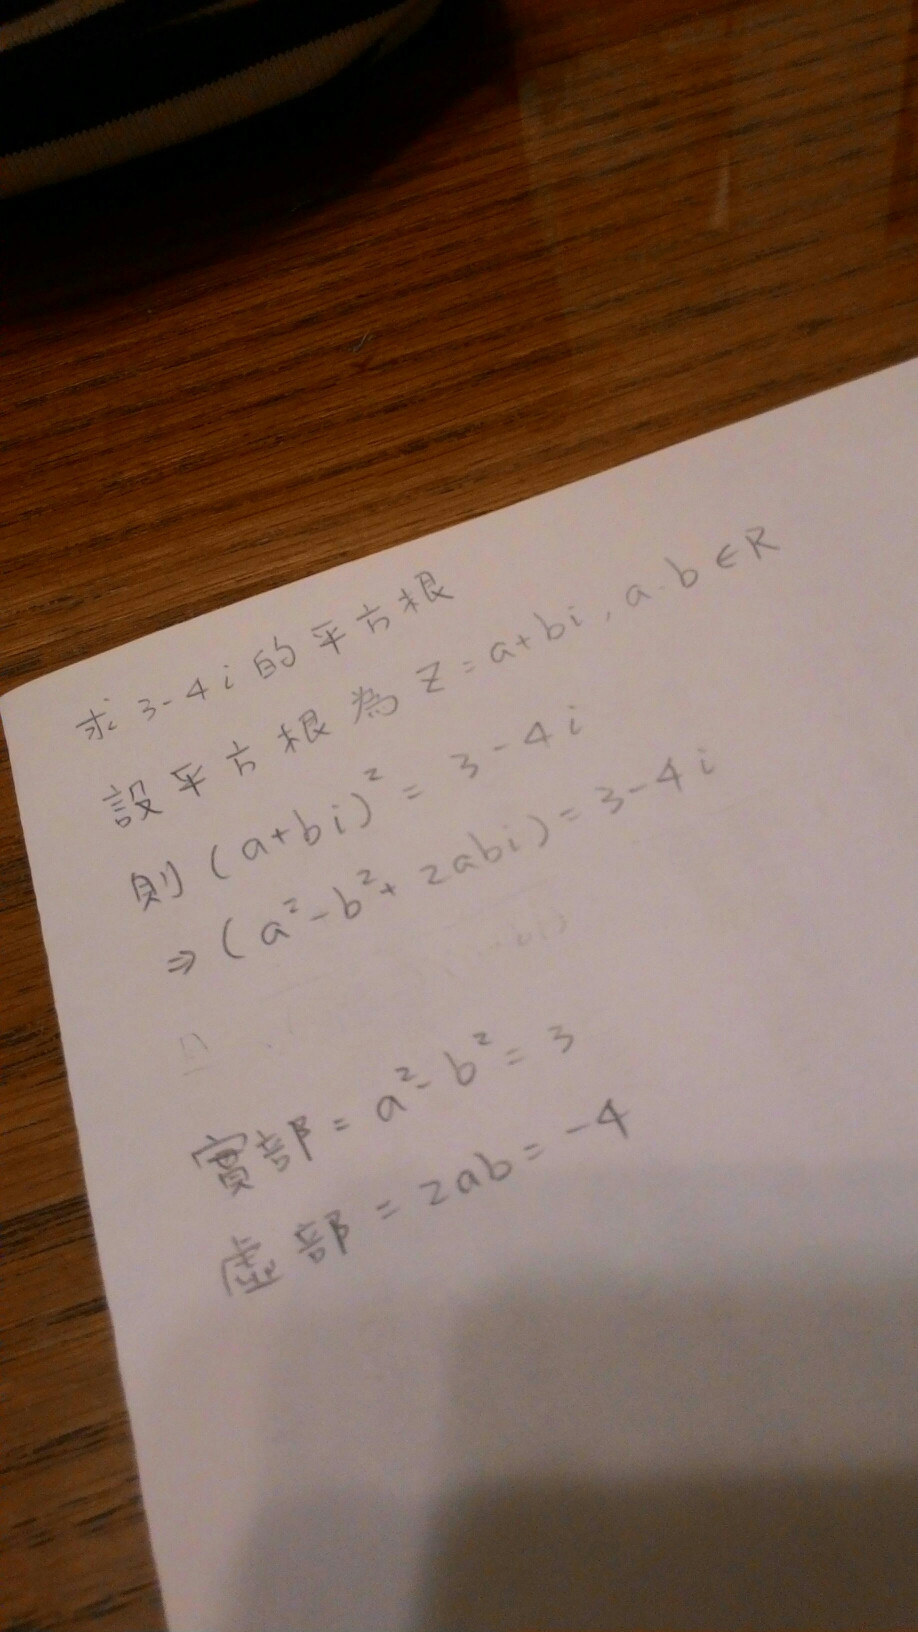 求 3-4i 的平方根
設平方根為 Z=a+bi, a.b∈R
則 (a+bi)² = 3-4i
⇒ (a²-b²+2abi)=3-4i
實部=a²-b²=3
虛部=2ab=-4